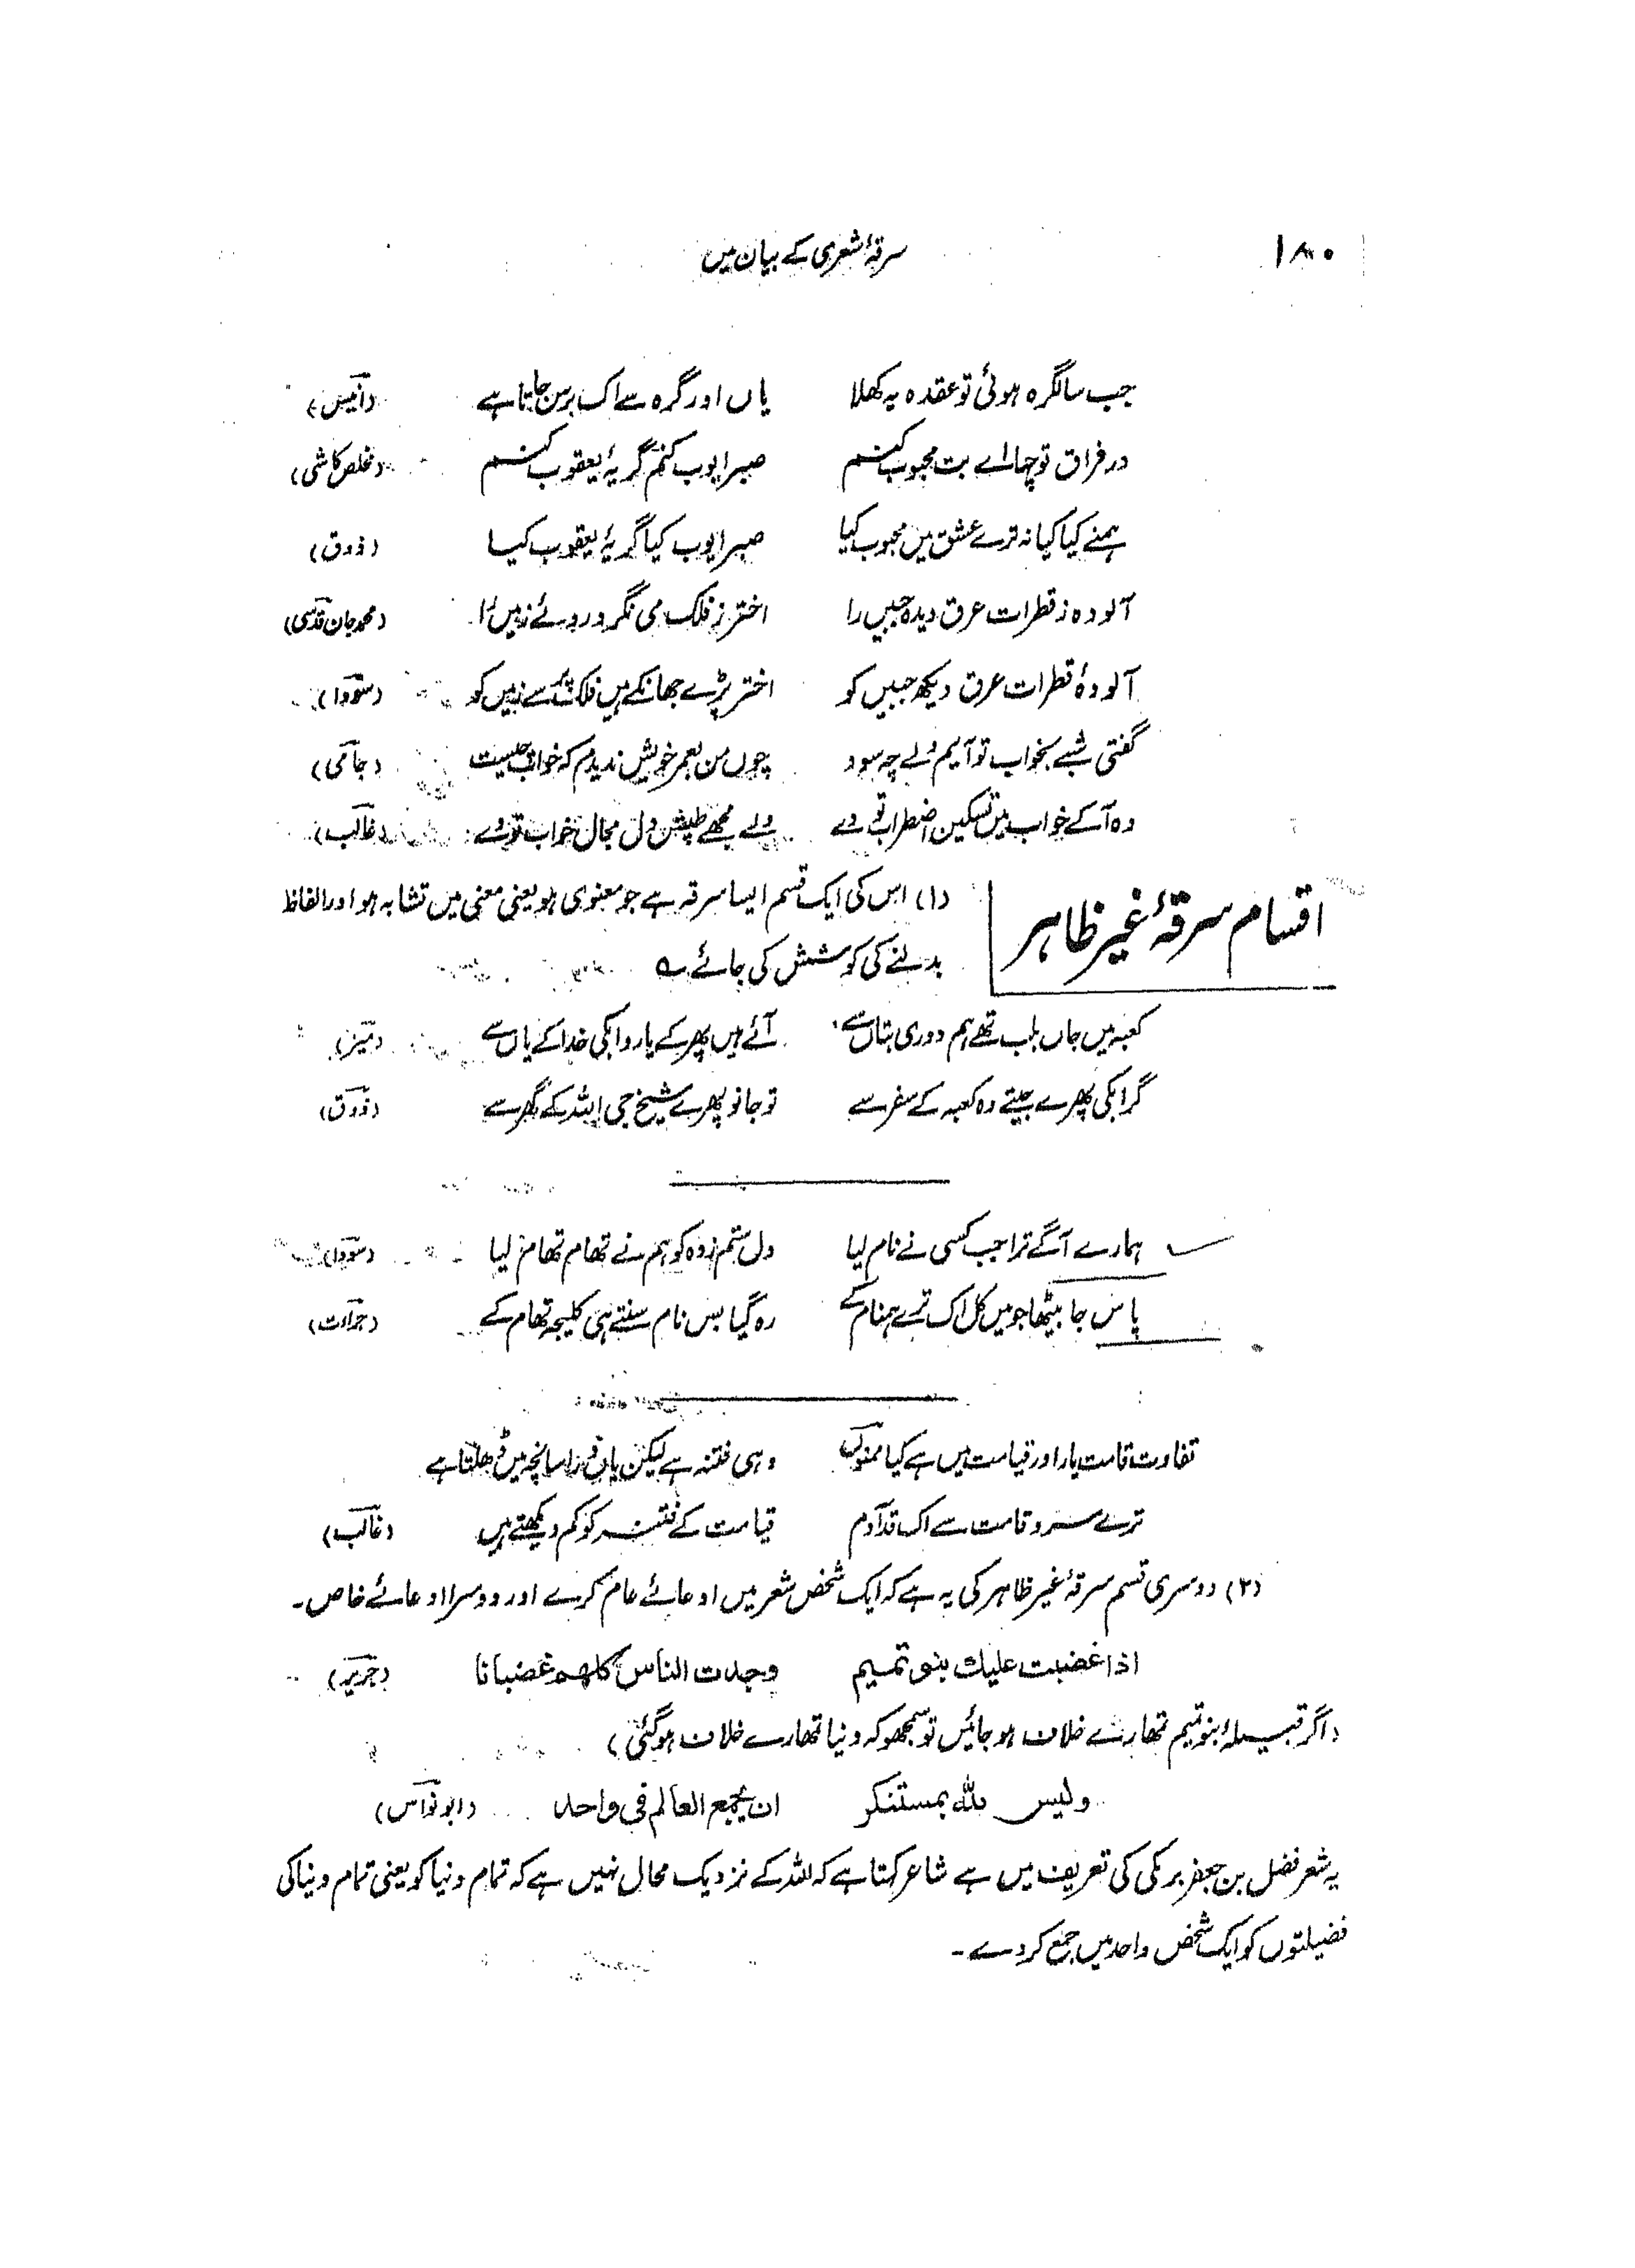 ۱۸۰ سرقۂ شعری کے بیان میں
جب سالگرہ ہوئی تو عقدہ یہ کھلا یاں اور گرہ سے اک برس جاتا ہے (انیس)
در فراق تو چہا اے بت محبوب کنم صبر ایوب کنم گریۂ یعقوب کنم (مخلص کاشی)
ہمنے کیا کیا نہ ترے عشق میں محبوب کیا صبر ایوب کیا گریۂ یعقوب کیا (ذوق)
آلودہ ز قطرات عرق دیدہ جبیں را اختر ز فلک می نگرد روئے زمیں را (محمد جان قدسی)
آلودۂ قطرات عرق دیکھ جبیں کو اختر پڑے جھانکے ہیں فلک سے زمیں کو (سودا)
گفتی شبے بخواب تو آیم ولے چہ سود چوں من بعمر خویش ندیدم کہ خواب چیست (جامی)
وہ آکے خواب میں تسکین اضطراب تو دے ولے مجھے طپش دل مجال خواب تو دے (غالب)
اقسام سرقۂ غیر ظاہر
(۱) اس کی ایک قسم ایسا سرقہ ہے جو معنوی ہو یعنی معنی میں تشابہ ہو اور الفاظ
بدلنے کی کوشش کی جائے ؎
کعبہ میں جاں بلب تھے ہم دوری بتاں سے آئے ہیں پھر کے یارو ابکی خدا کے یاں سے (میر)
گر ابکی پھرے جیتے وہ کعبہ کے سفر سے تو جانو پھرے شیخ جی اللہ کے گھر سے (ذوق)
ہمارے آگے ترا جب کسی نے نام لیا دل ستم زدہ کو ہم نے تھام تھام لیا (سودا)
پاس جا بیٹھا جو میں کل اک ترے ہمنام کے رہ گیا بس نام سنتے ہی کلیجہ تھام کے (جرأت)
تفاوت قامت یار اور قیامت میں ہے کیا ممنوں وہی فتنہ ہے لیکن یاں ذرا سانچہ میں ڈھلتا ہے
ترے سرو قامت سے اک قد آدم قیامت کے فتنہ کو کم دیکھتے ہیں (غالب)
(۲) دوسری قسم سرقۂ غیر ظاہر کی یہ ہے کہ ایک شخص شعر میں ادعائے عام کرے اور دوسرا ادعائے خاص۔
اذا غضبت علیك بنو تمیم وجدت الناس کلهم غضبانا (جریر)
(اگر قبیلۂ بنو تمیم تمھارے خلاف ہو جائیں تو سمجھو کہ دنیا تمھارے خلاف ہوگئی)
ولیس للہ بمستنکر ان یجمع العالم فی واحد (ابو نواس)
یہ شعر فضل بن جعفر برمکی کی تعریف میں ہے شاعر کہتا ہے کہ اللہ کے نزدیک محال نہیں ہے کہ تمام دنیا کو یعنی تمام دنیا کی
فضیلتوں کو ایک شخص واحد میں جمع کر دے۔